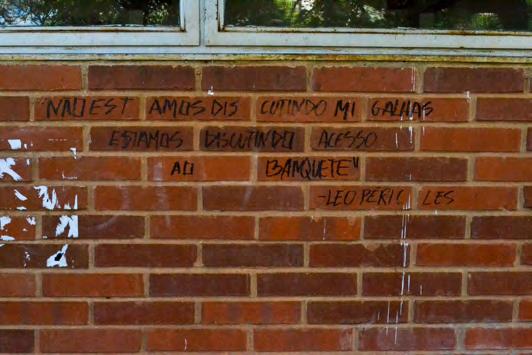 "NAO EST AMOS DIS CUTINDO MI GALHAS
ESTAMOS DISCUTINDO ACESSO
AO BANQUETE"
-LEO PERIC LES